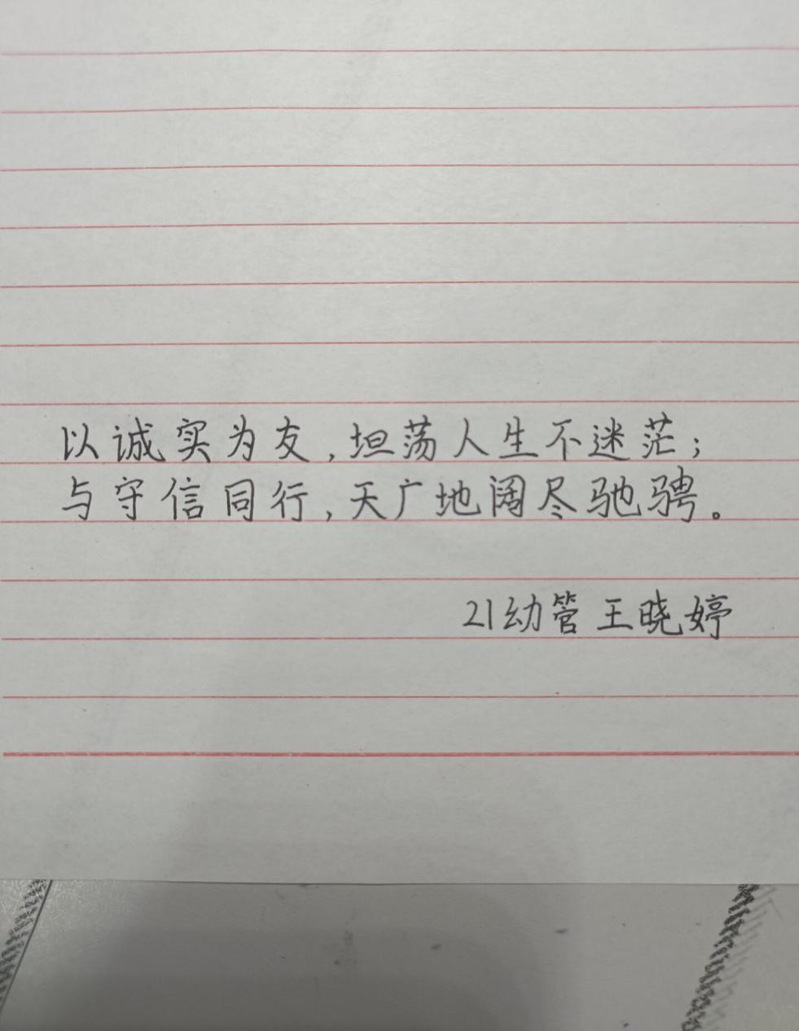 以诚实为友,坦荡人生不迷茫;
与守信同行,天广地阔尽驰骋。
21幼管 王晓婷